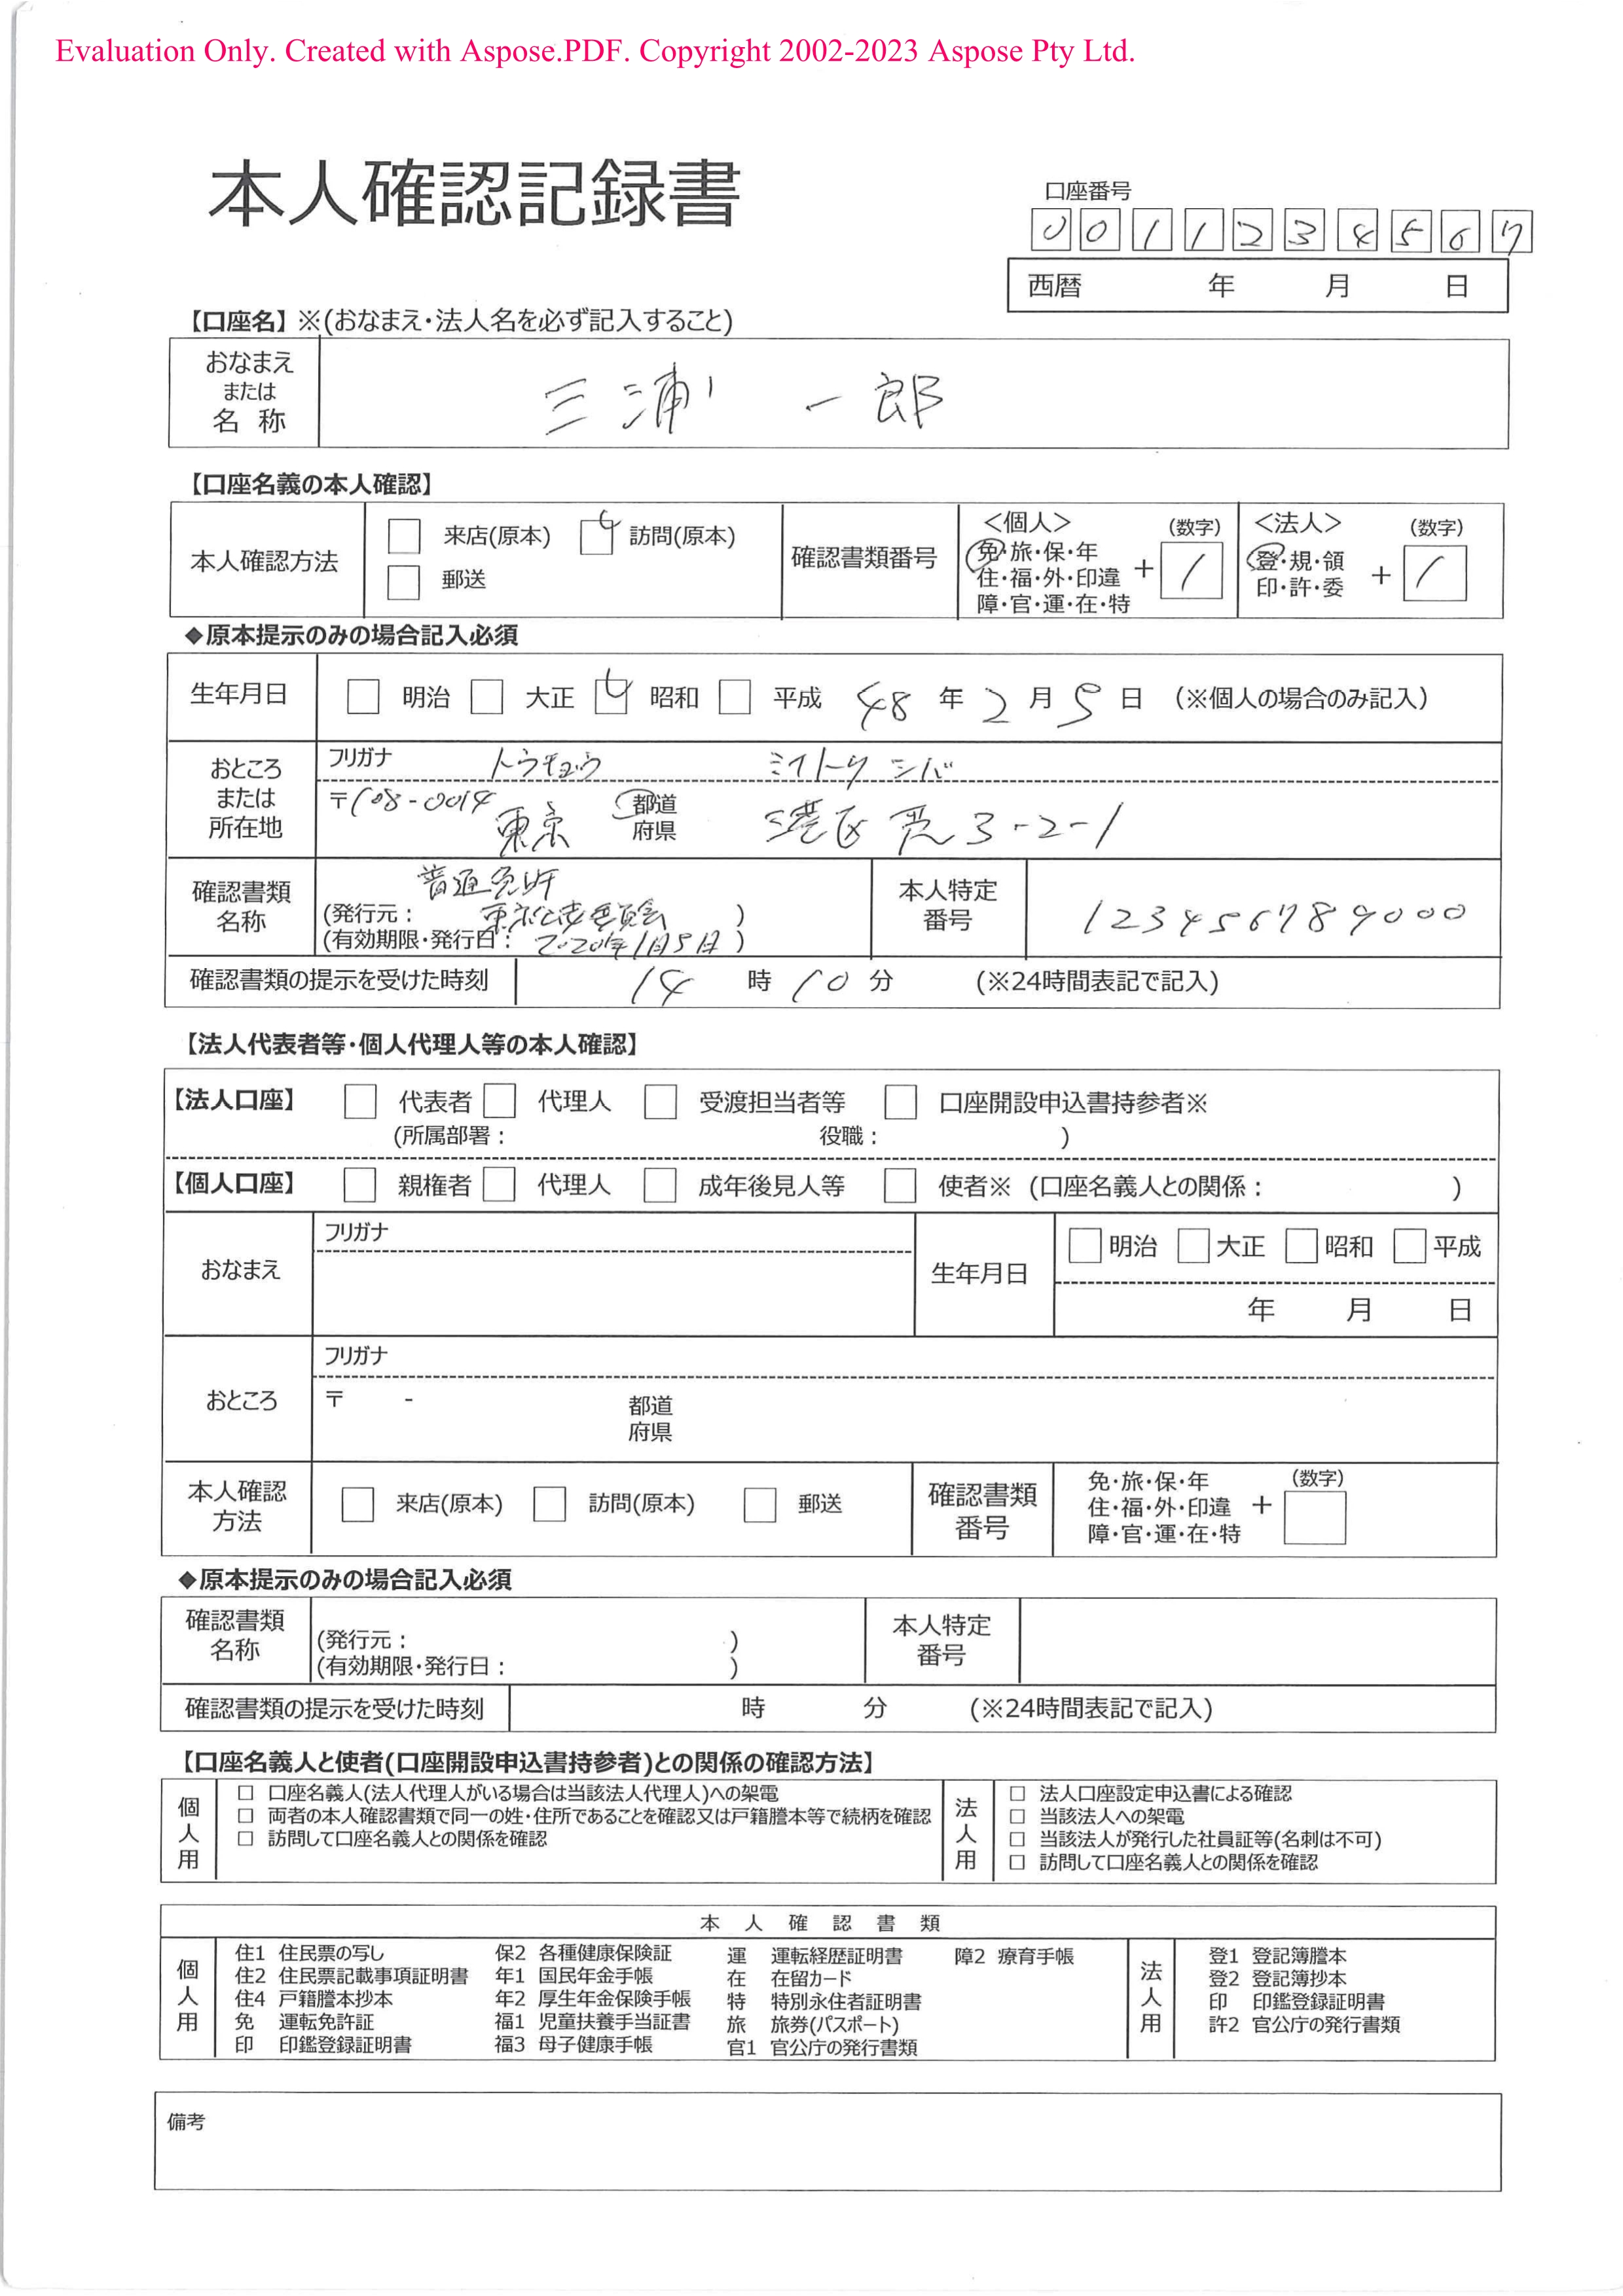 Evaluation Only. Created with Aspose.PDF. Copyright 2002-2023 Aspose Pty Ltd.
本人確認記録書
口座番号
0 0 1 1 2 3 4 5 6 7
西暦 年 月 日
【口座名】※(おなまえ・法人名を必ず記入すること)
おなまえ
または
名 称
三浦 一郎
【口座名義の本人確認】
本人確認方法
□ 来店(原本) □ 訪問(原本)
□ 郵送
確認書類番号
<個人> (数字)
免・旅・保・年
住・福・外・印違 + 1
障・官・運・在・特
<法人> (数字)
登・規・領
印・許・委 + 1
◆原本提示のみの場合記入必須
生年月日 □ 明治 □ 大正 □ 昭和 □ 平成 48 年 2 月 5 日 (※個人の場合のみ記入)
おところ
または
所在地
フリガナ トウキョウ ミナトク シバ
〒108-0014 東京 都道府県 港区芝3-2-1
確認書類
名称
普通免許
(発行元: 東京公安委員会 )
(有効期限・発行日: 2020年1月5日 )
本人特定
番号
123456789000
確認書類の提示を受けた時刻 14 時 10 分 (※24時間表記で記入)
【法人代表者等・個人代理人等の本人確認】
【法人口座】 □ 代表者 □ 代理人 □ 受渡担当者等 □ 口座開設申込書持参者※
(所属部署: 役職: )
【個人口座】 □ 親権者 □ 代理人 □ 成年後見人等 □ 使者※ (口座名義人との関係: )
おなまえ
フリガナ
生年月日
□ 明治 □ 大正 □ 昭和 □ 平成
年 月 日
おところ
フリガナ
〒 - 都道
府県
本人確認
方法
□ 来店(原本) □ 訪問(原本) □ 郵送
確認書類
番号
免・旅・保・年 (数字)
住・福・外・印違 +
障・官・運・在・特
◆原本提示のみの場合記入必須
確認書類
名称
(発行元: )
(有効期限・発行日: )
本人特定
番号
確認書類の提示を受けた時刻 時 分 (※24時間表記で記入)
【口座名義人と使者(口座開設申込書持参者)との関係の確認方法】
個人用
□ 口座名義人(法人代理人がいる場合は当該法人代理人)への架電
□ 両者の本人確認書類で同一の姓・住所であることを確認又は戸籍謄本等で続柄を確認
□ 訪問して口座名義人との関係を確認
法人用
□ 法人口座設定申込書による確認
□ 当該法人への架電
□ 当該法人が発行した社員証等(名刺は不可)
□ 訪問して口座名義人との関係を確認
本 人 確 認 書 類
個人用
住1 住民票の写し
住2 住民票記載事項証明書
住4 戸籍謄本抄本
免 運転免許証
印 印鑑登録証明書
保2 各種健康保険証
年1 国民年金手帳
年2 厚生年金保険手帳
福1 児童扶養手当証書
福3 母子健康手帳
運 運転経歴証明書
在 在留カード
特 特別永住者証明書
旅 旅券(パスポート)
官1 官公庁の発行書類
障2 療育手帳
法人用
登1 登記簿謄本
登2 登記簿抄本
印 印鑑登録証明書
許2 官公庁の発行書類
備考